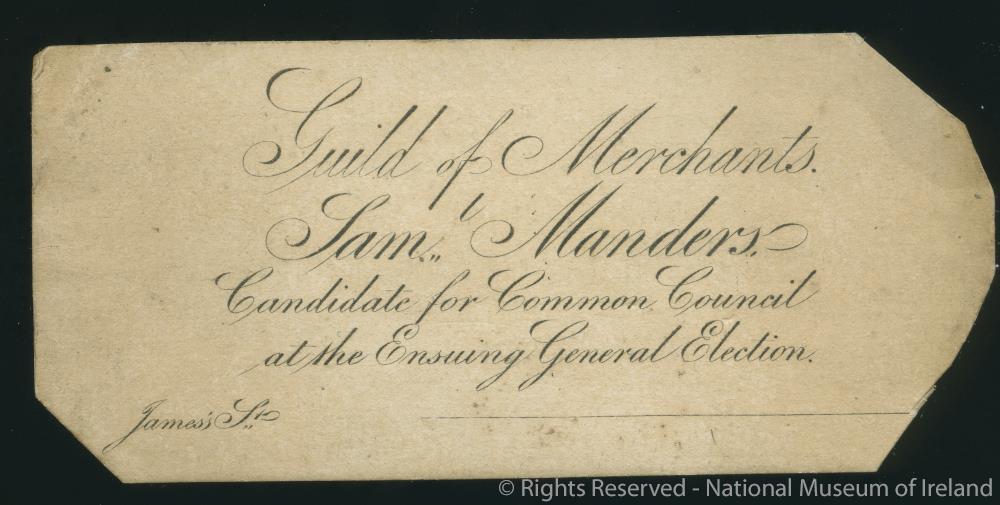 Guild of Merchants.
Sam.l Manders.
Candidate for Common Council
at the Ensuing General Election.
James's St.
© Rights Reserved - National Museum of Ireland